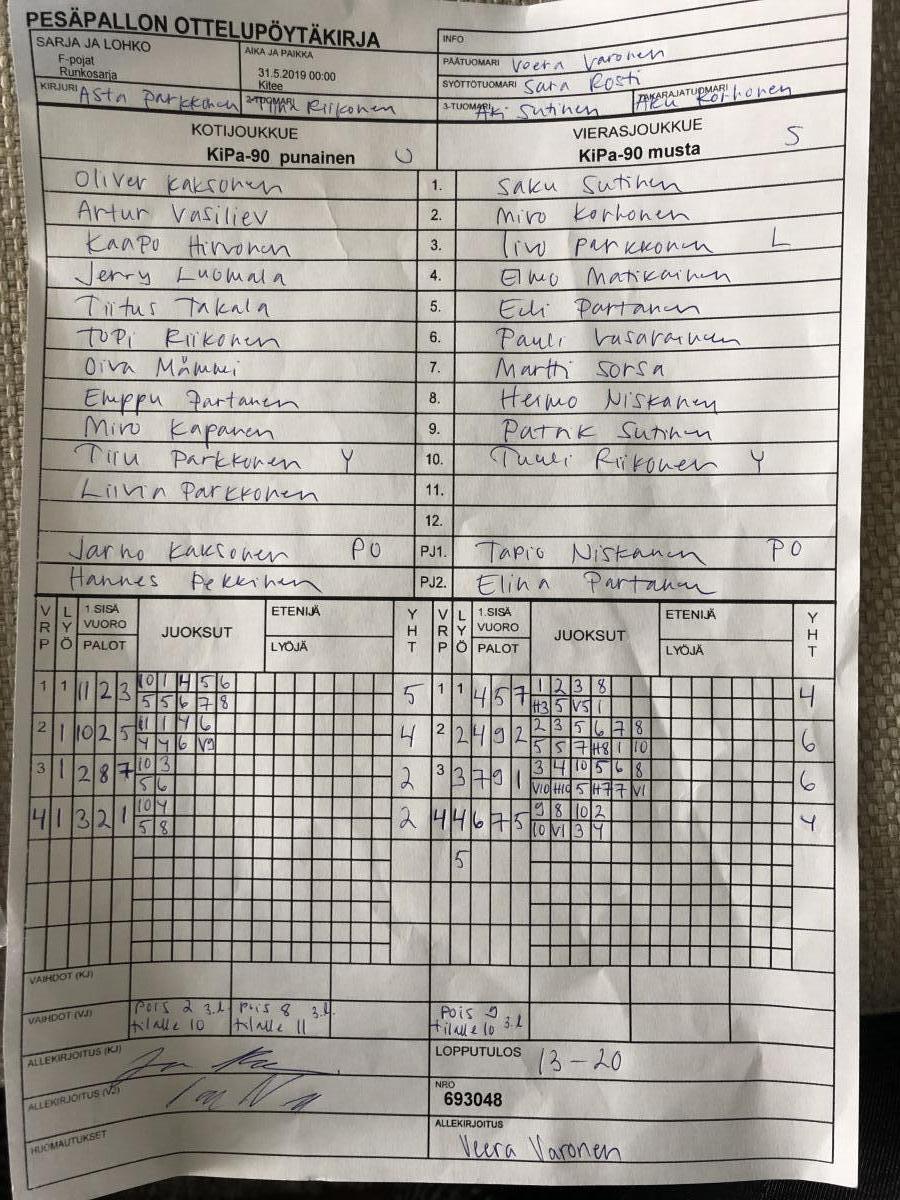 PESÄPALLON OTTELUPÖYTÄKIRJA
SARJA JA LOHKO
F-pojat
Runkosarja
AIKA JA PAIKKA
31.5.2019 00:00
Kitee
INFO
PÄÄTUOMARI Veera Varonen
SYÖTTÖTUOMARI Sara Rosti
KIRJURI Asta Parkkonen
2-TUOMARI Riikonen
3-TUOMARI Aki Sutinen
TAKARAJATUOMARI Aku Korhonen
KOTIJOUKKUE
KiPa-90 punainen U
VIERASJOUKKUE
KiPa-90 musta S
Oliver Kaksonen 1. Saku Sutinen
Artur Vasiliev 2. Miro Korhonen
Kaapo Hirvonen 3. Iivo Parkkonen L
Jerry Luomala 4. Elmo Matikainen
Tiitus Takala 5. Eeli Partanen
Topi Riikonen 6. Pauli Vasarainen
Oiva Mämmi 7. Martti Sorsa
Emppu Partanen 8. Hermo Niskanen
Miro Kapanen 9. Patrik Sutinen
Tiru Parkkonen Y 10. Tuuli Riikonen Y
Parkkonen 11.
12.
Jarno Kaksonen PO PJ1. Tapio Niskanen PO
Hannes Pekkinen PJ2. Elina Partanen
VRP LYÖ 1.SISÄ VUORO PALOT JUOKSUT ETENIJÄ LYÖJÄ YHT VRP LYÖ 1.SISÄ VUORO PALOT JUOKSUT ETENIJÄ LYÖJÄ YHT
1 1 11 2 3 10 1 4 5 6 5 1 1 4 5 7 1 2 3 8 4
5 5 6 7 8 H3 5 V5 1
2 1 10 2 5 11 1 4 6 4 2 2 4 9 2 2 3 5 6 7 8 6
4 4 6 V9 5 5 7 H8 1 10
3 1 2 8 7 10 3 2 3 3 7 9 1 3 4 10 5 6 8 6
5 6 V10 H10 5 H7 7 V1
4 1 3 2 1 10 4 2 4 4 6 7 5 9 8 10 2 4
5 8 10 V1 3 4
5
VAIHDOT (KJ)
VAIHDOT (VJ) Pois 2 3.l Pois 8 3.l Pois 9
tilalle 10 tilalle 11 tilalle 10 3.l
ALLEKIRJOITUS (KJ)
LOPPUTULOS 13-20
ALLEKIRJOITUS (VJ)
NRO
693048
HUOMAUTUKSET
ALLEKIRJOITUS
Veera Varonen